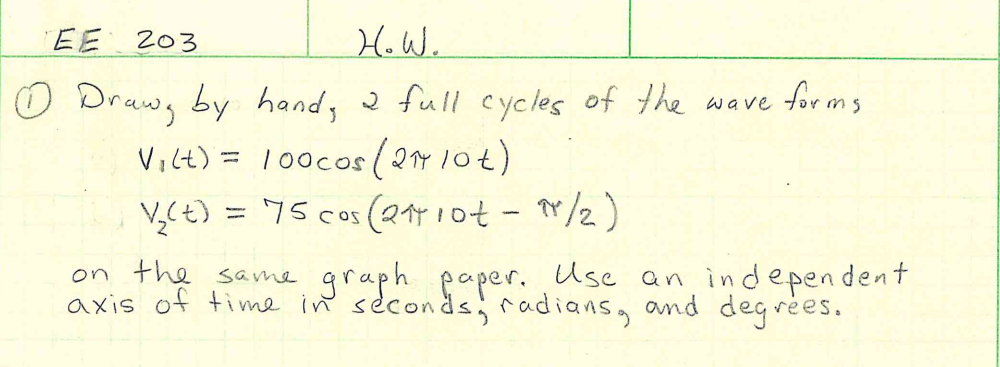 EE 203 H.W.
① Draw, by hand, 2 full cycles of the wave forms
V₁(t) = 100cos(2π10t)
V₂(t) = 75 cos(2π10t - π/2)
on the same graph paper. Use an independent
axis of time in seconds, radians, and degrees.